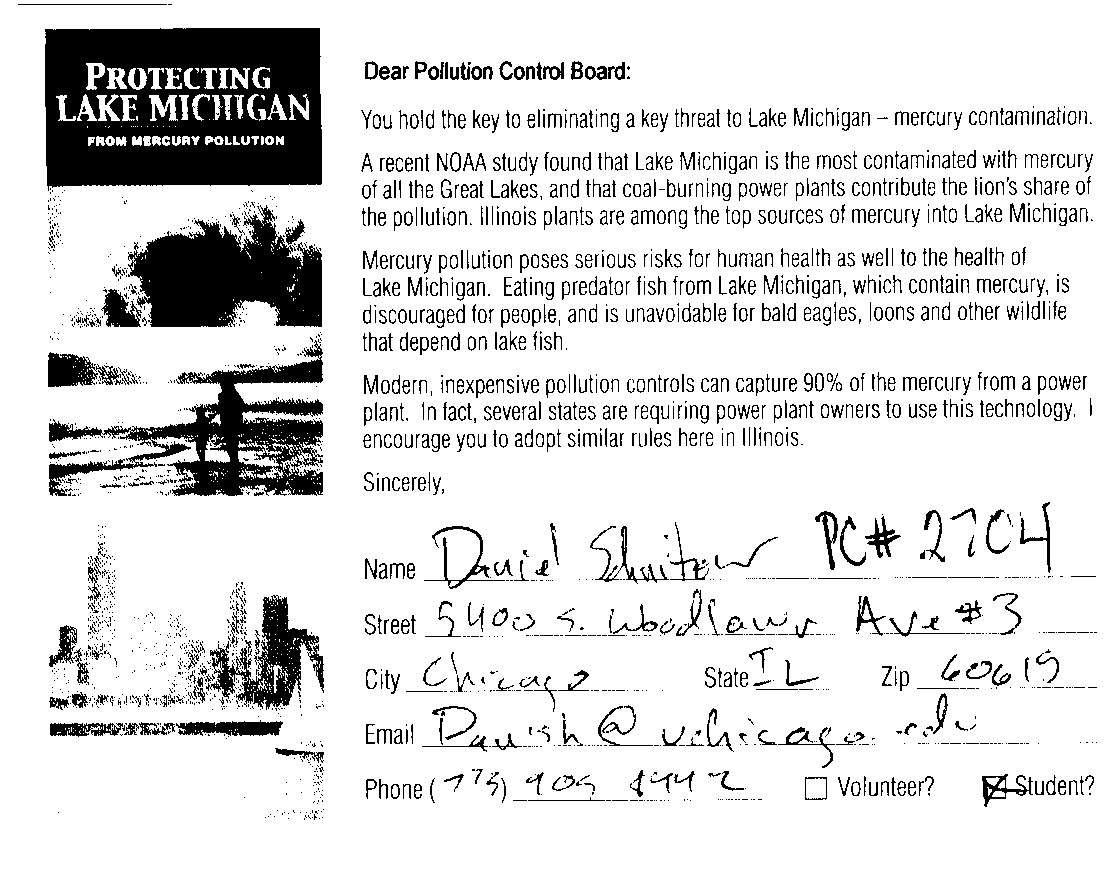 PROTECTING
LAKE MICHIGAN
FROM MERCURY POLLUTION
Dear Pollution Control Board:
You hold the key to eliminating a key threat to Lake Michigan – mercury contamination.
A recent NOAA study found that Lake Michigan is the most contaminated with mercury
of all the Great Lakes, and that coal-burning power plants contribute the lion's share of
the pollution. Illinois plants are among the top sources of mercury into Lake Michigan.
Mercury pollution poses serious risks for human health as well to the health of
Lake Michigan. Eating predator fish from Lake Michigan, which contain mercury, is
discouraged for people, and is unavoidable for bald eagles, loons and other wildlife
that depend on lake fish.
Modern, inexpensive pollution controls can capture 90% of the mercury from a power
plant. In fact, several states are requiring power plant owners to use this technology. I
encourage you to adopt similar rules here in Illinois.
Sincerely,
Name Daniel PC# 2704
Street 5400 S. Woodlawn Ave #3
City Chicago State IL Zip 60615
Email
Phone (773) Volunteer? Student?